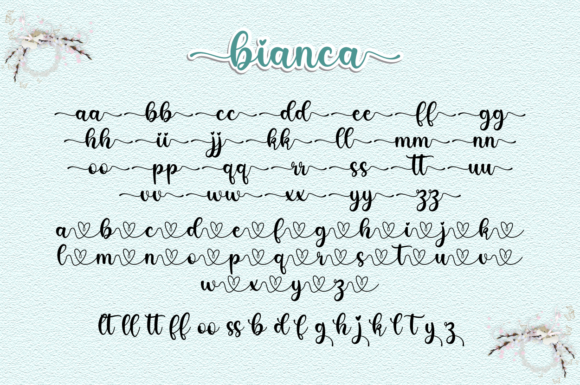 bianca
aa bb cc dd ee ff gg
hh ii jj kk ll mm nn
oo pp qq rr ss tt uu
vv ww xx yy zz
a b c d e f g h i j k
l m n o p q r s t u v
w x y z
lt ll tt ff oo ss b d f g h j k l t y z